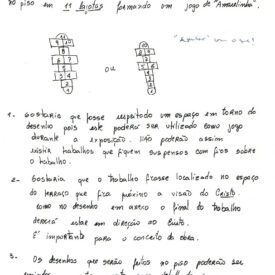 no piso em 11 lajotas formando um jogo de "Amarelinha".
ou
1- Gostaria que fosse respeitado um espaço em torno do
desenho pois este poderá ser utilizado como jogo
durante a exposição. Não poderão assim
existir trabalhos que fiquem suspensos com fios sobre
o trabalho.
2- Gostaria que o trabalho ficasse localizado no espaço
do terraço que fica próximo a visão do Cristo.
como no desenho em anexo o final do trabalho
deverá estar em direção ao Cristo.
É importante para o conceito da obra.
3- Os desenhos que serão feitos no piso poderão ser